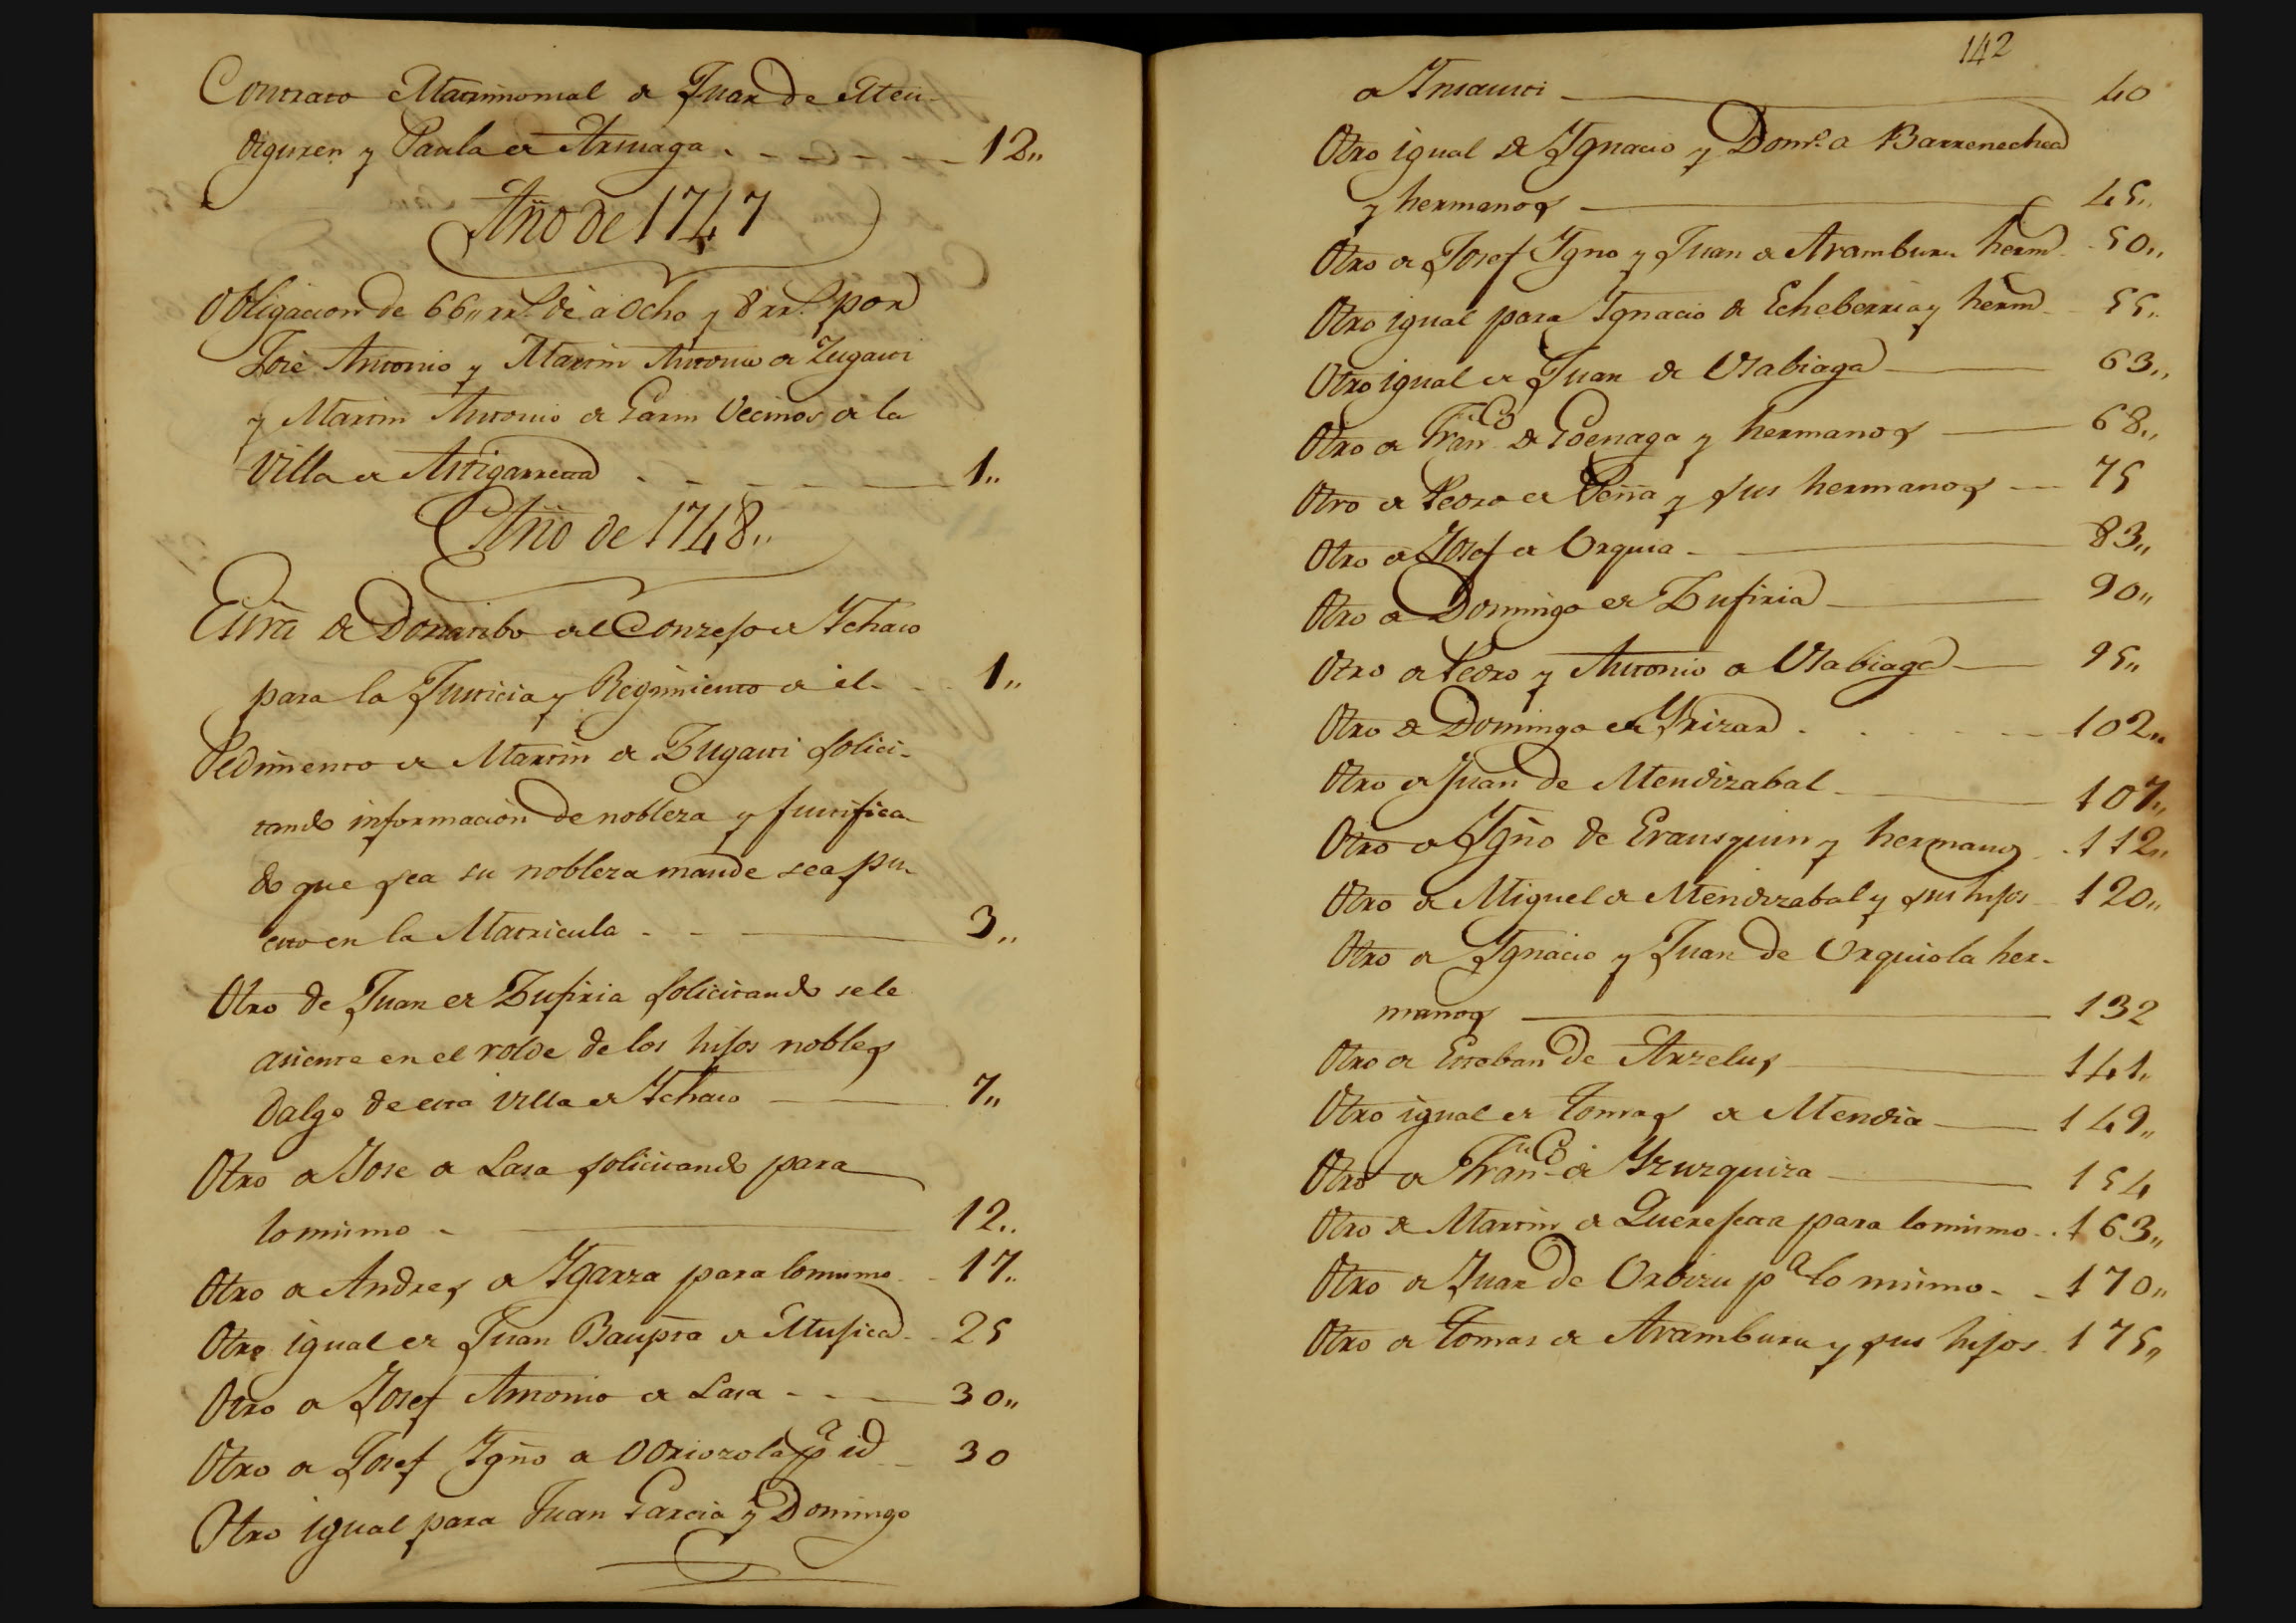 Contrato Matrimonial de Juan de Aten-
diguren y Paula de Arsuaga 12,,
Año de 1747
Obligacion de 66,, rr.s de a ocho y 8 rr.s por
José Antonio y Martin Antonio de Zugasti
y Martin Antonio de Garin Vecinos de la
Villa de Astigarreta 1,,
Año de 1748,,
Essra de Donatibo del Conzejo de Ychaso
para la Justicia y Regimiento de él 1,,
Pedimento de Martin de Zugasti solici-
tando informacion de nobleza y justifica-
do que sea su nobleza mande sea pu-
esto en la Matricula 3,,
Otro de Juan de Zufiria solicitando se le
asiente en el rolde de los hijos nobles
dalgo de esta Villa de Ychaso 7,,
Otro de Jose de Lasa solicitando para
lo mismo 12,,
Otro de Andres de Ygarza para lo mismo 17,,
Otro igual de Juan Baupta de Mujica 25
Otro de Josef Antonio de Lasa 30,,
Otro de Josef Ygño de Odriozola pa id 30
Otro igual para Juan Garcia y Domingo
142
de Insausti 40
Otro igual de Ygnacio y Dom.o Barrenechea
y hermanos 45,,
Otro de Josef Ygno y Juan de Aramburu herm 50,,
Otro igual para Ygnacio de Echeberria y herm 55,,
Otro igual de Juan de Usabiaga 63,,
Otro de Fran.co de Goenaga y hermanos 68,,
Otro de Pedro de Peña y sus hermanos 75
Otro de Josef de Orquia 83,,
Otro de Domingo de Zufiria 90,,
Otro de Pedro y Antonio de Usabiaga 95,,
Otro de Domingo de Yrizar 102,,
Otro de Juan de Mendizabal 107,,
Otro de Ygño de Erausquin y hermano 112,,
Otro de Miguel de Mendizabal y sus hijos 120,,
Otro de Ygnacio y Juan de Urquiola her-
manos 132
Otro de Esteban de Arzelus 141,,
Otro igual de Tomas de Mendia 149,,
Otro de Fran.co de Yzurquiza 154
Otro de Martin de Querejeta para lo mismo 163,,
Otro de Juan de Orbizu pa lo mismo 170,,
Otro de Tomas de Aramburu y sus hijos 175,,